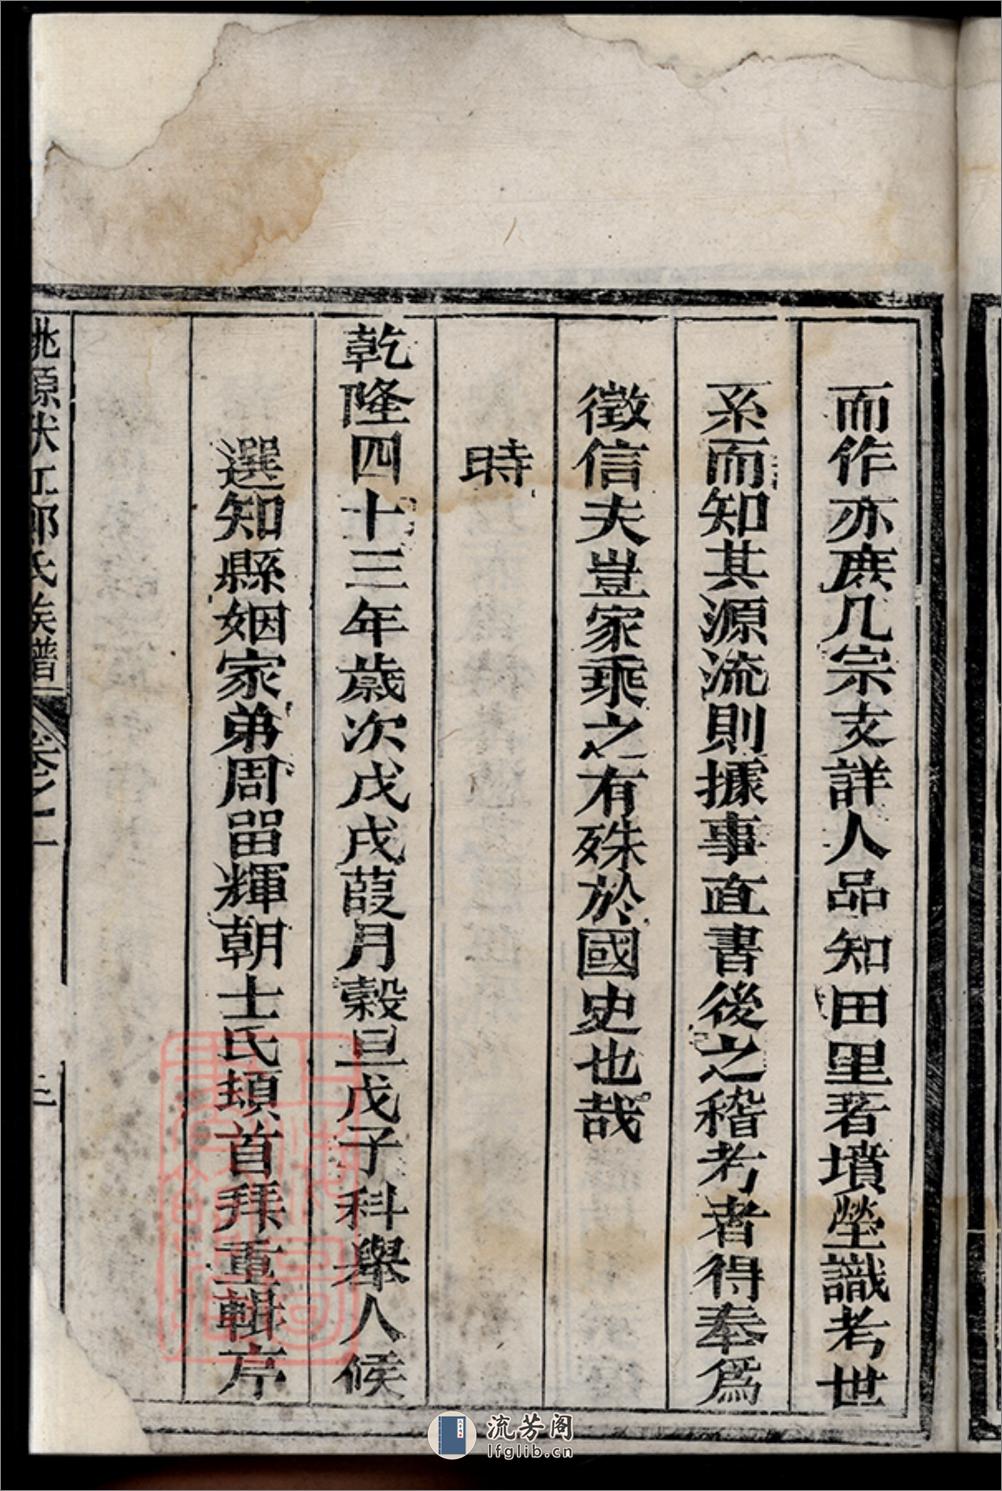 而作亦庶几宗支詳人品知田里著墳塋識考世
系而知其源流則據事直書後之稽考者得奉爲
徵信夫豈家乘之有殊於國史也哉
時
乾隆四十三年歲次戊戌葭月穀旦戊子科舉人候
選知縣姻家弟周畱輝朝士氏頓首拜重輯序
桃源伏江郭氏族譜
卷之一
二
流芳阁
lfglib.cn